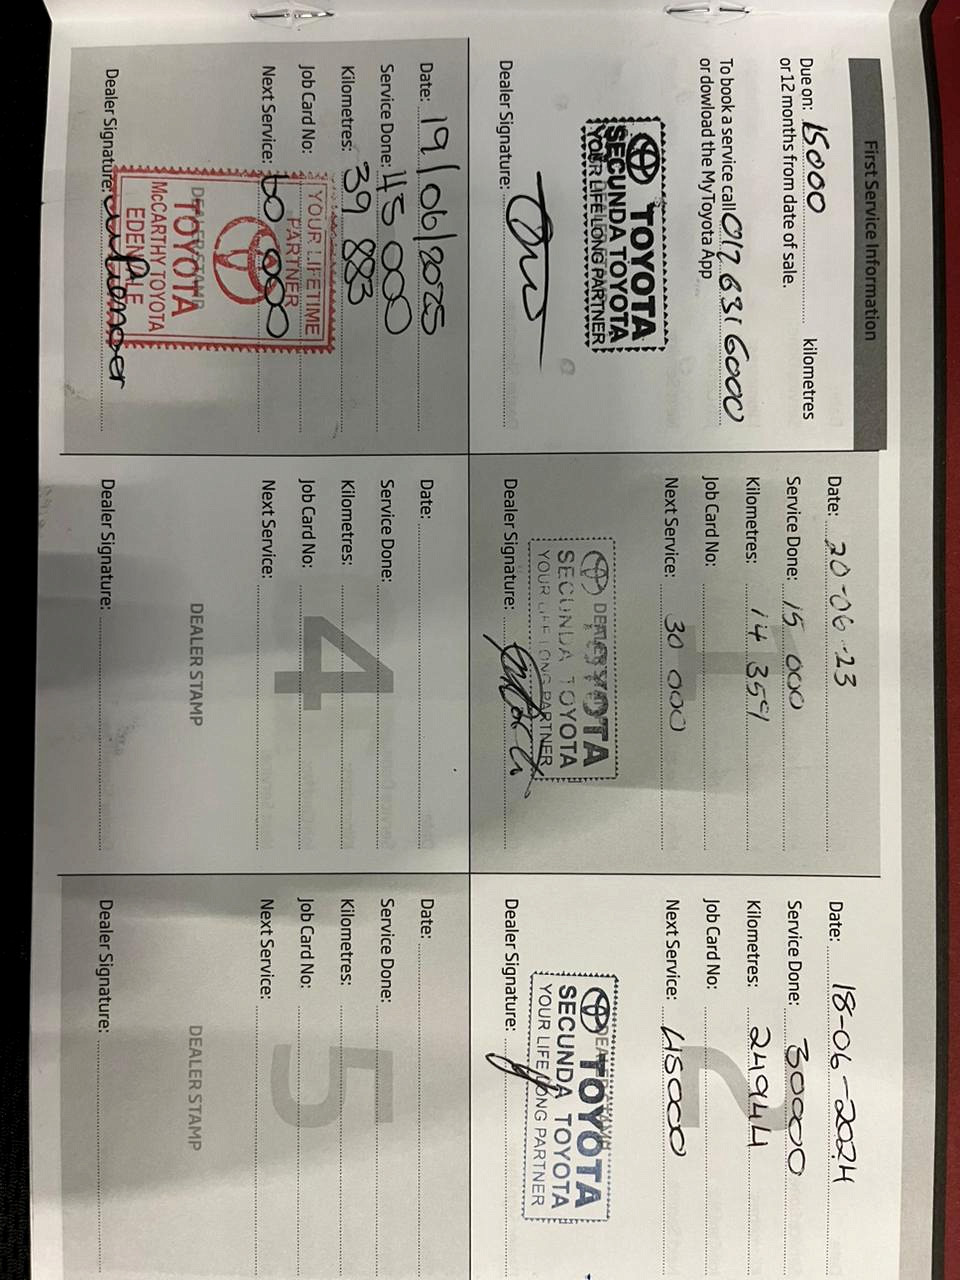 First Service Information
Due on: 15000 kilometres
or 12 months from date of sale.
To book a service call 017 631 6000
or dowload the MyToyota App
TOYOTA
SECUNDA TOYOTA
YOUR LIFE LONG PARTNER
Dealer Signature:
Date: 20-06-23
Service Done: 15 000
Kilometres: 14 359
Job Card No:
Next Service: 30 000
1
DEALER STAMP
TOYOTA
SECUNDA TOYOTA
YOUR LIFE LONG PARTNER
Dealer Signature:
Date: 18-06-2024
Service Done: 30000
Kilometres: 24944
Job Card No:
Next Service: 45000
2
DEALER STAMP
TOYOTA
SECUNDA TOYOTA
YOUR LIFE LONG PARTNER
Dealer Signature:
Date: 19/06/2025
Service Done: 45 000
Kilometres: 39 883
Job Card No:
Next Service: 60 000
YOUR LIFETIME
PARTNER
DEALER STAMP
TOYOTA
McCARTHY TOYOTA
EDENVALE
Dealer Signature:
Date:
Service Done:
Kilometres:
Job Card No:
Next Service:
4
DEALER STAMP
Dealer Signature:
Date:
Service Done:
Kilometres:
Job Card No:
Next Service:
5
DEALER STAMP
Dealer Signature: